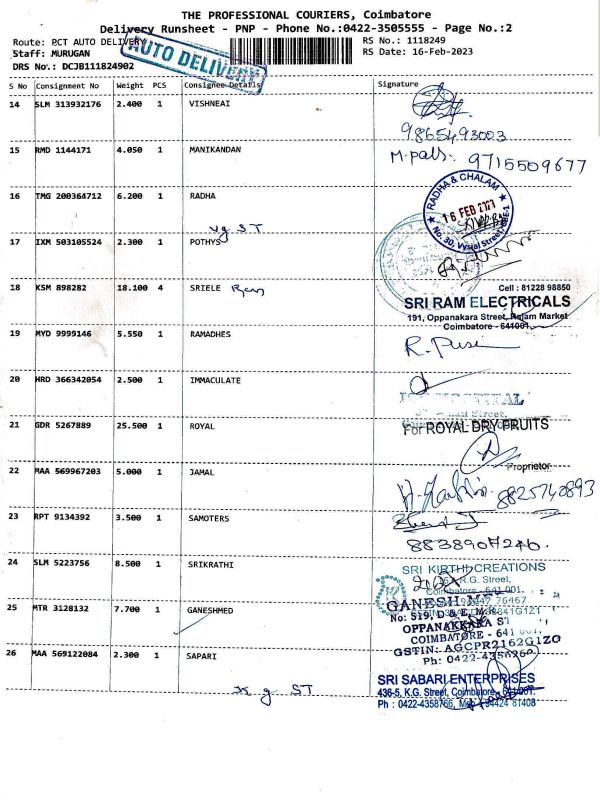 THE PROFESSIONAL COURIERS, Coimbatore
Delivery Runsheet - PNP - Phone No.:0422-3505555 - Page No.:2
Route: PCT AUTO DELIVERY
RS No.: 1118249
Staff: MURUGAN
RS Date: 16-Feb-2023
DRS No.: DCJB111824902
AUTO DELIVERY
S No Consignment No Weight PCS Consignee Details Signature
14 SLM 313932176 2.400 1 VISHNEAI
9865493003
15 RMD 1144171 4.050 1 MANIKANDAN
9715509677
16 TMG 200364712 6.200 1 RADHA
RADHA & CHALAM
16 FEB 2023
No. 30, Vysial Street, CBE-1
ST
17 IXM 503105524 2.300 1 POTHYS
18 KSM 898282 18.100 4 SRIELE
Cell : 81228 98850
SRI RAM ELECTRICALS
191, Oppanakara Street, Rajam Market
Coimbatore - 641001.
19 MYD 9999146 5.550 1 RAMADHES
20 HRD 366342054 2.500 1 IMMACULATE
21 GDR 5267889 25.500 1 ROYAL
For ROYAL DRY FRUITS
Proprietor
22 MAA 569967203 5.000 1 JAMAL
8825740893
23 RPT 9134392 3.500 1 SAMOTERS
8838907246.
24 SLM 5223756 8.500 1 SRIKRATHI
SRI KIRTHI CREATIONS
K.G. Street,
Coimbatore - 641 001.
25 MTR 3128132 7.700 1 GANESHMED
GANESH
No: 519, D & E,
OPPANAKKARA ST
COIMBATORE - 641
GSTIN: AGCPR2162G1ZO
Ph: 0422-4350260
26 MAA 569122084 2.300 1 SAPARI
ST
SRI SABARI ENTERPRISES
436-5, K.G. Street, Coimbatore - 641 001.
Ph : 0422-4358766, 94424 81408